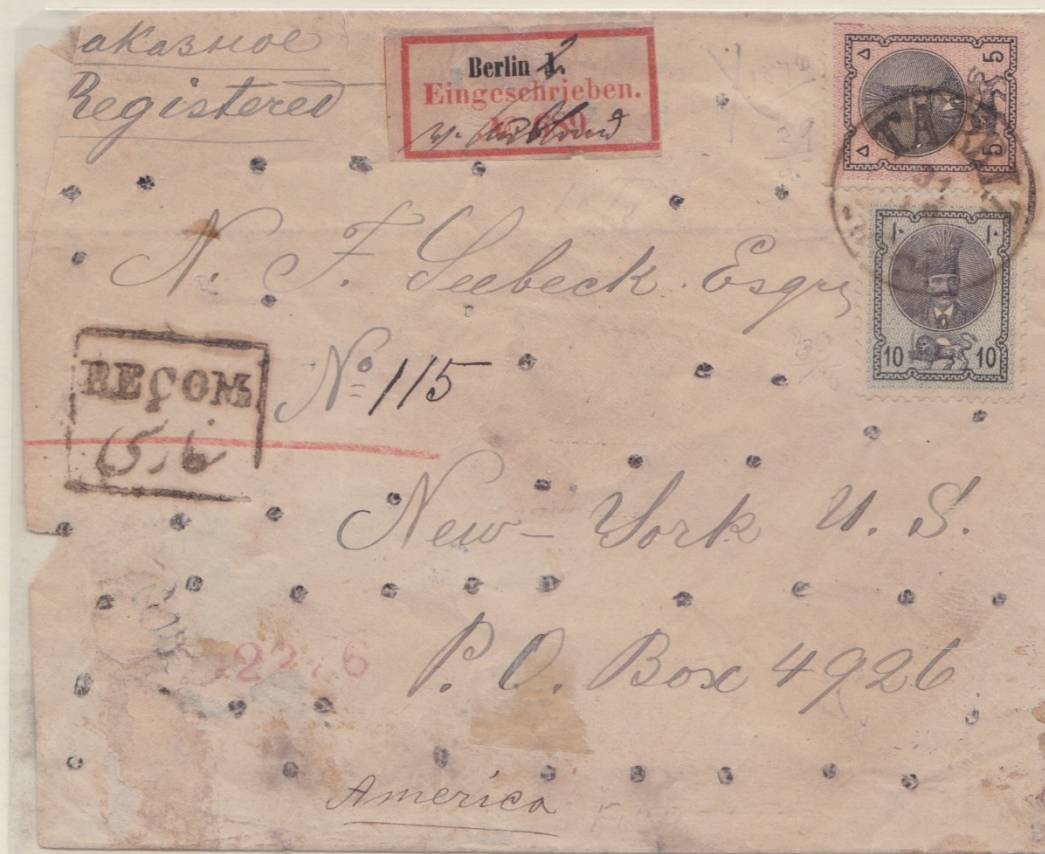 аказное
Registered
Berlin 2.
Eingeschrieben.
689
۵ 5
TABRIZ
۵ 5
۱۰ ۱۰
10 10
N. F. Seebeck. Esqre
RECOM
No 115
New-York U. S.
P. O. Box 4926
America